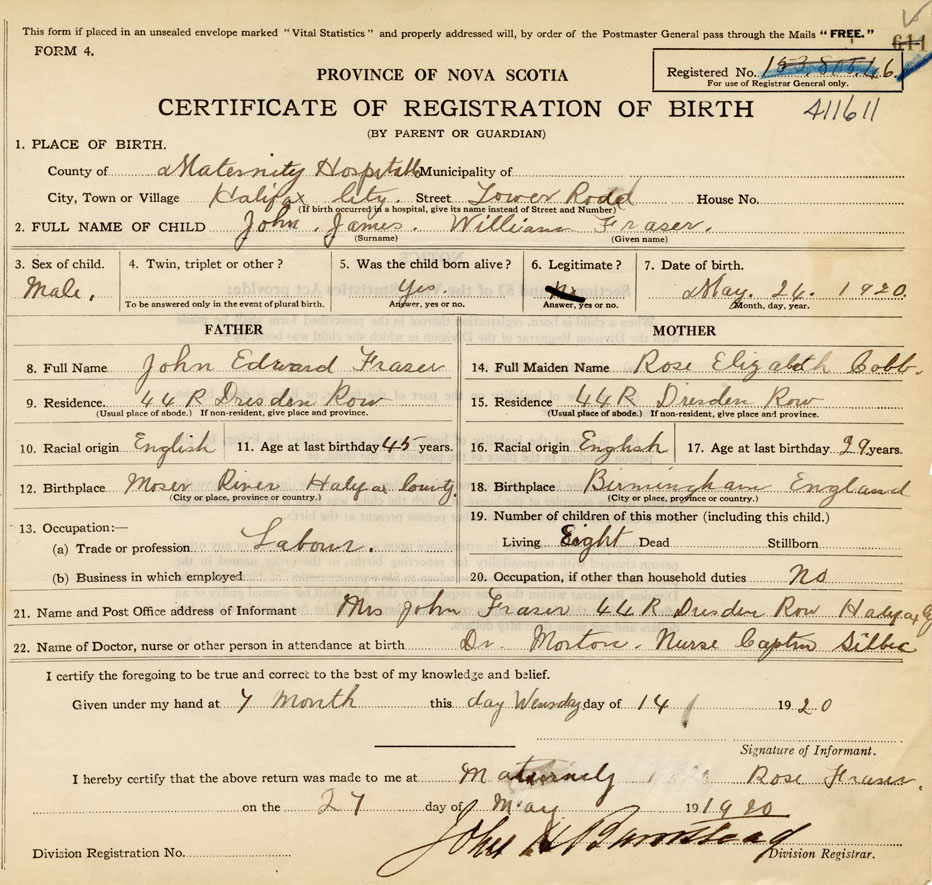 This form if placed in an unsealed envelope marked "Vital Statistics" and properly addressed will, by order of the Postmaster General pass through the Mails "FREE."
611
FORM 4.
PROVINCE OF NOVA SCOTIA
Registered No.
For use of Registrar General only.
CERTIFICATE OF REGISTRATION OF BIRTH
411611
(BY PARENT OR GUARDIAN)
1. PLACE OF BIRTH.
County of Maternity Hospital Municipality of
City, Town or Village Halifax City. Street Tower Road House No.
(If birth occurred in a hospital, give its name instead of Street and Number)
2. FULL NAME OF CHILD John. James. William Fraser.
(Surname) (Given name)
3. Sex of child. 4. Twin, triplet or other? 5. Was the child born alive? 6. Legitimate? 7. Date of birth.
Male. Yes. May. 26. 1920.
To be answered only in the event of plural birth. Answer, yes or no. Answer, yes or no. Month, day, year.
FATHER MOTHER
8. Full Name John Edward Fraser 14. Full Maiden Name Rose Elizabeth Cobb.
9. Residence. 44R Dresden Row 15. Residence 44R Dresden Row
(Usual place of abode.) If non-resident, give place and province. (Usual place of abode.) If non-resident, give place and province.
10. Racial origin English 11. Age at last birthday 45 years. 16. Racial origin English 17. Age at last birthday 29 years.
12. Birthplace Moser River Halifax County. 18. Birthplace Birmingham England
(City or place, province or country.) (City or place, province or country.)
13. Occupation:— 19. Number of children of this mother (including this child.)
(a) Trade or profession Labour. Living Eight Dead Stillborn
(b) Business in which employed 20. Occupation, if other than household duties No
21. Name and Post Office address of Informant Mrs John Fraser 44R Dresden Row Halifax
22. Name of Doctor, nurse or other person in attendance at birth Dr. Morton. Nurse
I certify the foregoing to be true and correct to the best of my knowledge and belief.
Given under my hand at 7 Month this day day of 14 1920
Signature of Informant.
I hereby certify that the above return was made to me at Maternity Rose Fraser.
on the 27 day of May 19 1920
Division Registration No. Division Registrar.